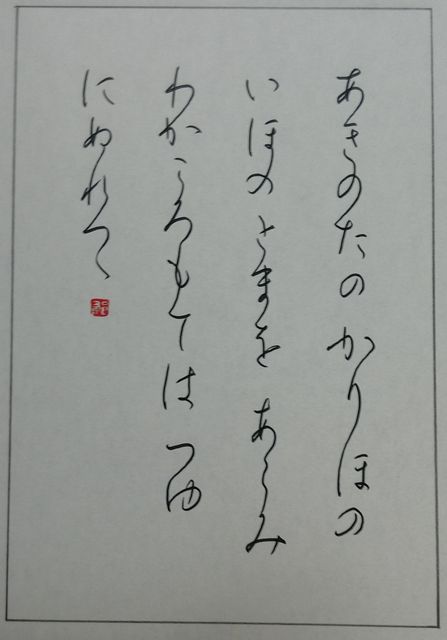 あきのたの かりほの
いほの とまを あらみ
わかころもては つゆ
にぬれつゝ